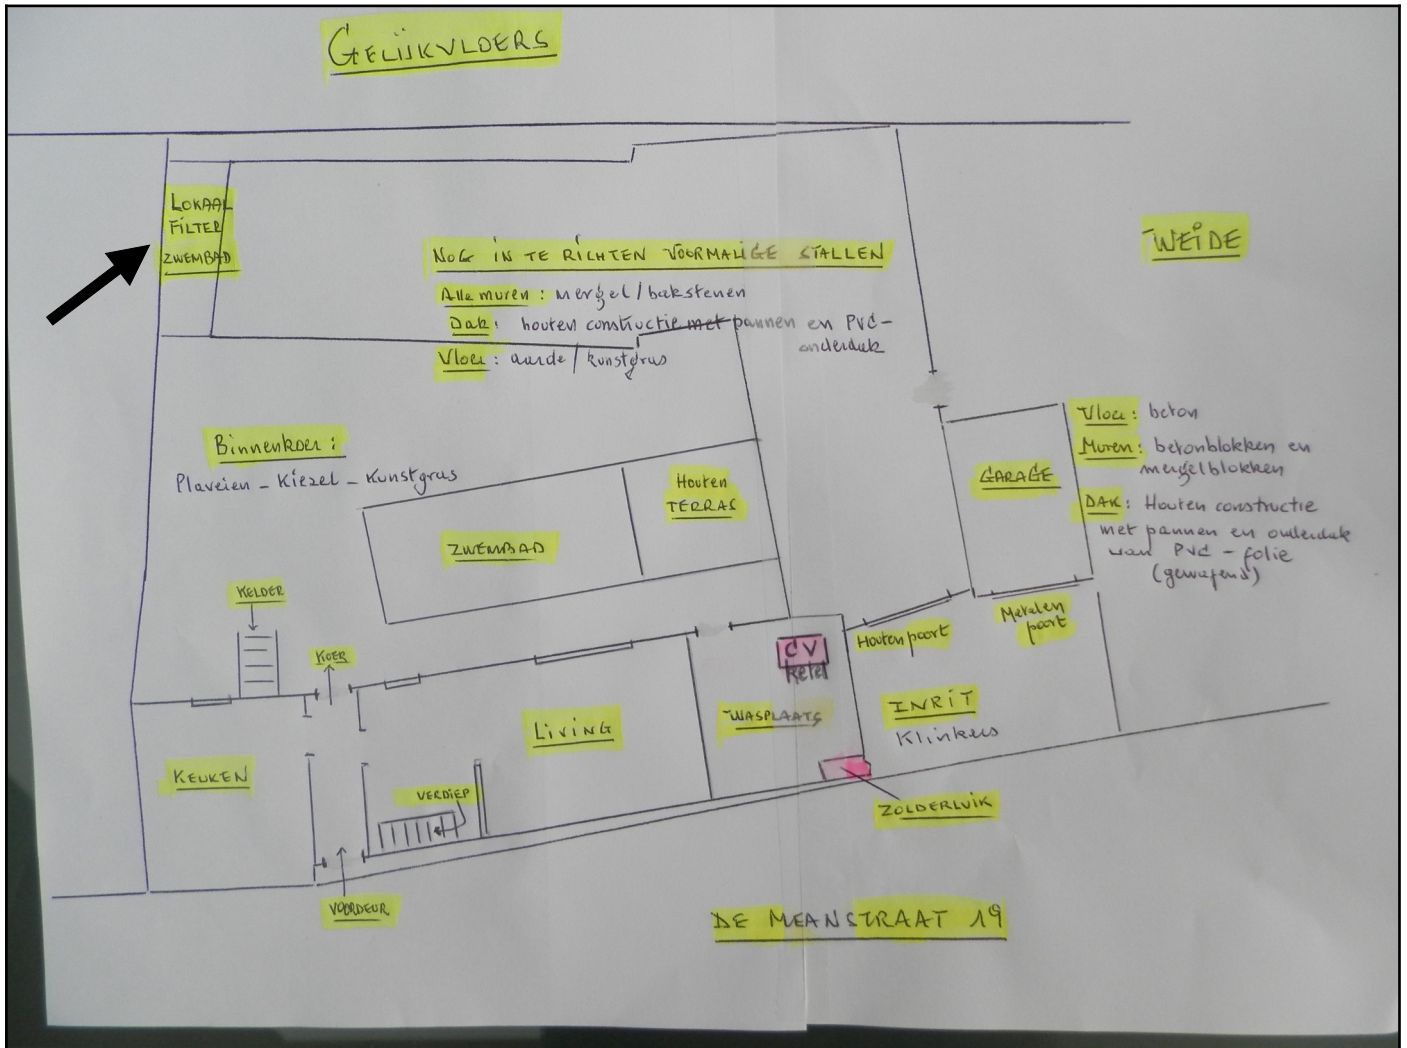 GELIJKVLOERS
LOKAAL
FILTER
ZWEMBAD
NOG IN TE RICHTEN VOORMALIGE STALLEN
Alle muren : mergel / bakstenen
Dak : houten constructie met pannen en PVC-
onderdak
Vloer : aarde / kunstgras
WEIDE
Binnenkoer :
Plaveien - Kiezel - Kunstgras
ZWEMBAD
Houten
TERRAS
GARAGE
Vloer : beton
Muren : betonblokken en
mergelblokken
DAK : Houten constructie
met pannen en onderdak
van PVC - folie
(gewapend)
KELDER
KOER
Houten poort
Metalen
poort
CV
ketel
LIVING
WASPLAATS
INRIT
Klinkers
KEUKEN
VERDIEP
ZOLDERLUIK
VOORDEUR
DE MEANSTRAAT 19